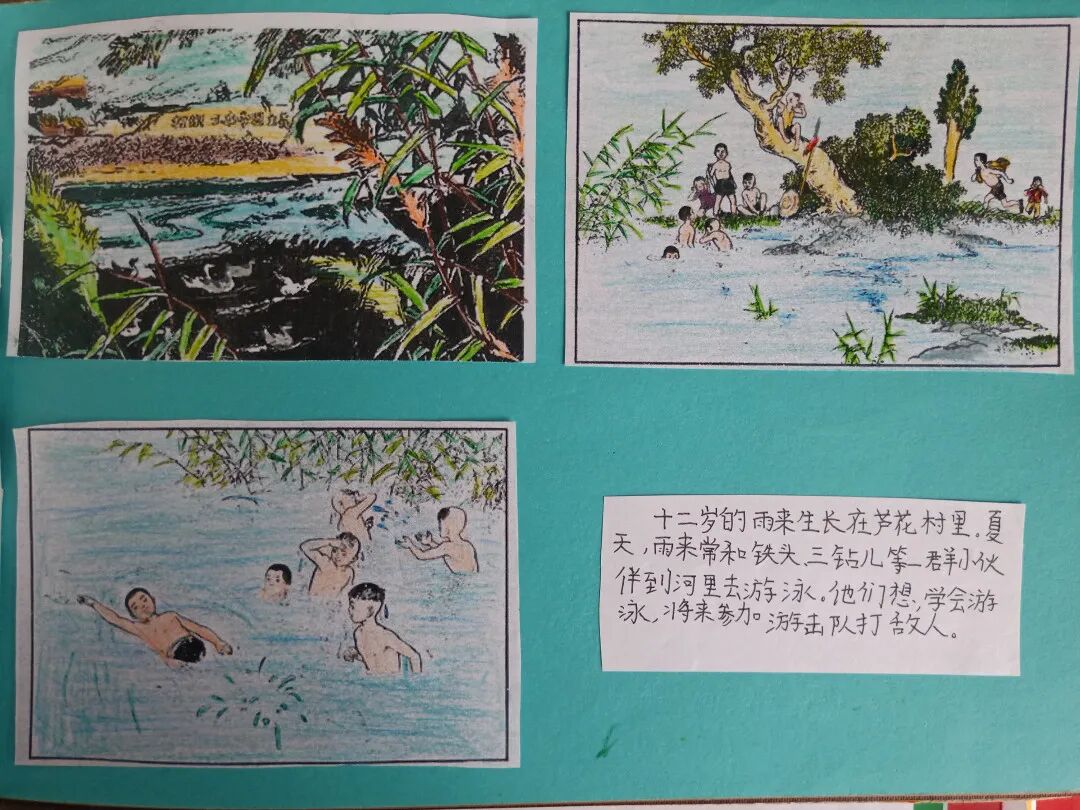 十二岁的雨来生长在芦花村里。夏
天，雨来常和铁头、三钻儿等一群小伙
伴到河里去游泳。他们想，学会游
泳，将来参加游击队打敌人。